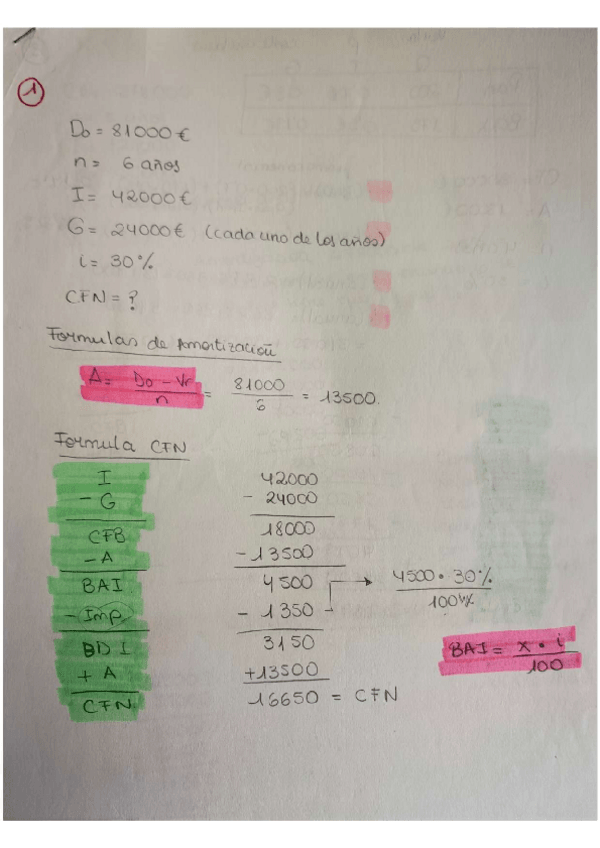 1
Do = 81000 €
n = 6 años
I = 42000 €
G = 24000 € (cada uno de los años)
i = 30%
CFN = ?
Formulas de Amortización
A = Do - Vr / n = 81000 / 6 = 13500.
Formula CFN
I 42000
- G - 24000
CFB 18000
- A - 13500
BAI 4500 → 4500 · 30% / 100%
- Imp - 1350
BDI 3150
+ A + 13500
CFN 16650 = CFN
BAI = x · i / 100